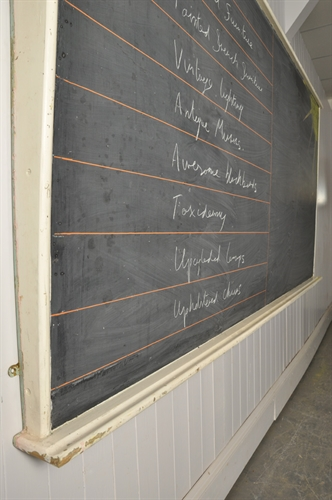 Furniture
Painted French Furniture
Vintage lighting
Antique Mirrors
Awesome blackboards
Taxidermy
Upcycled lamps
Upholstered chairs